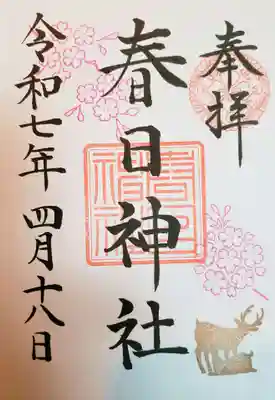 奉拝
春日神社
令和七年 四月十八日